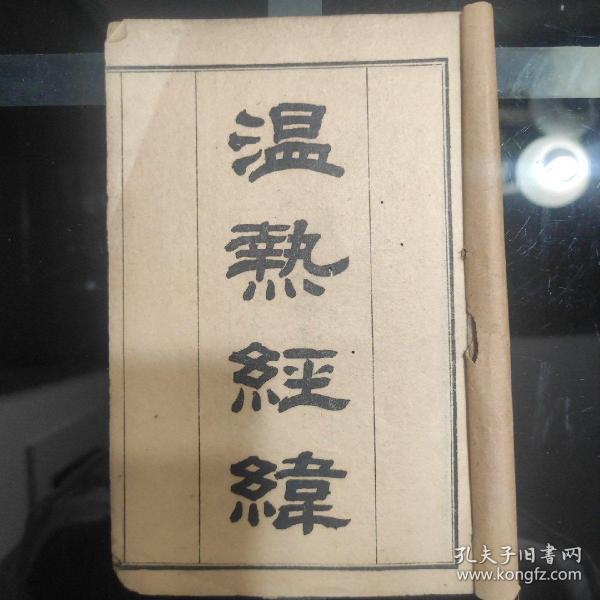 温熱經緯
孔夫子旧書网
www.kongfz.com